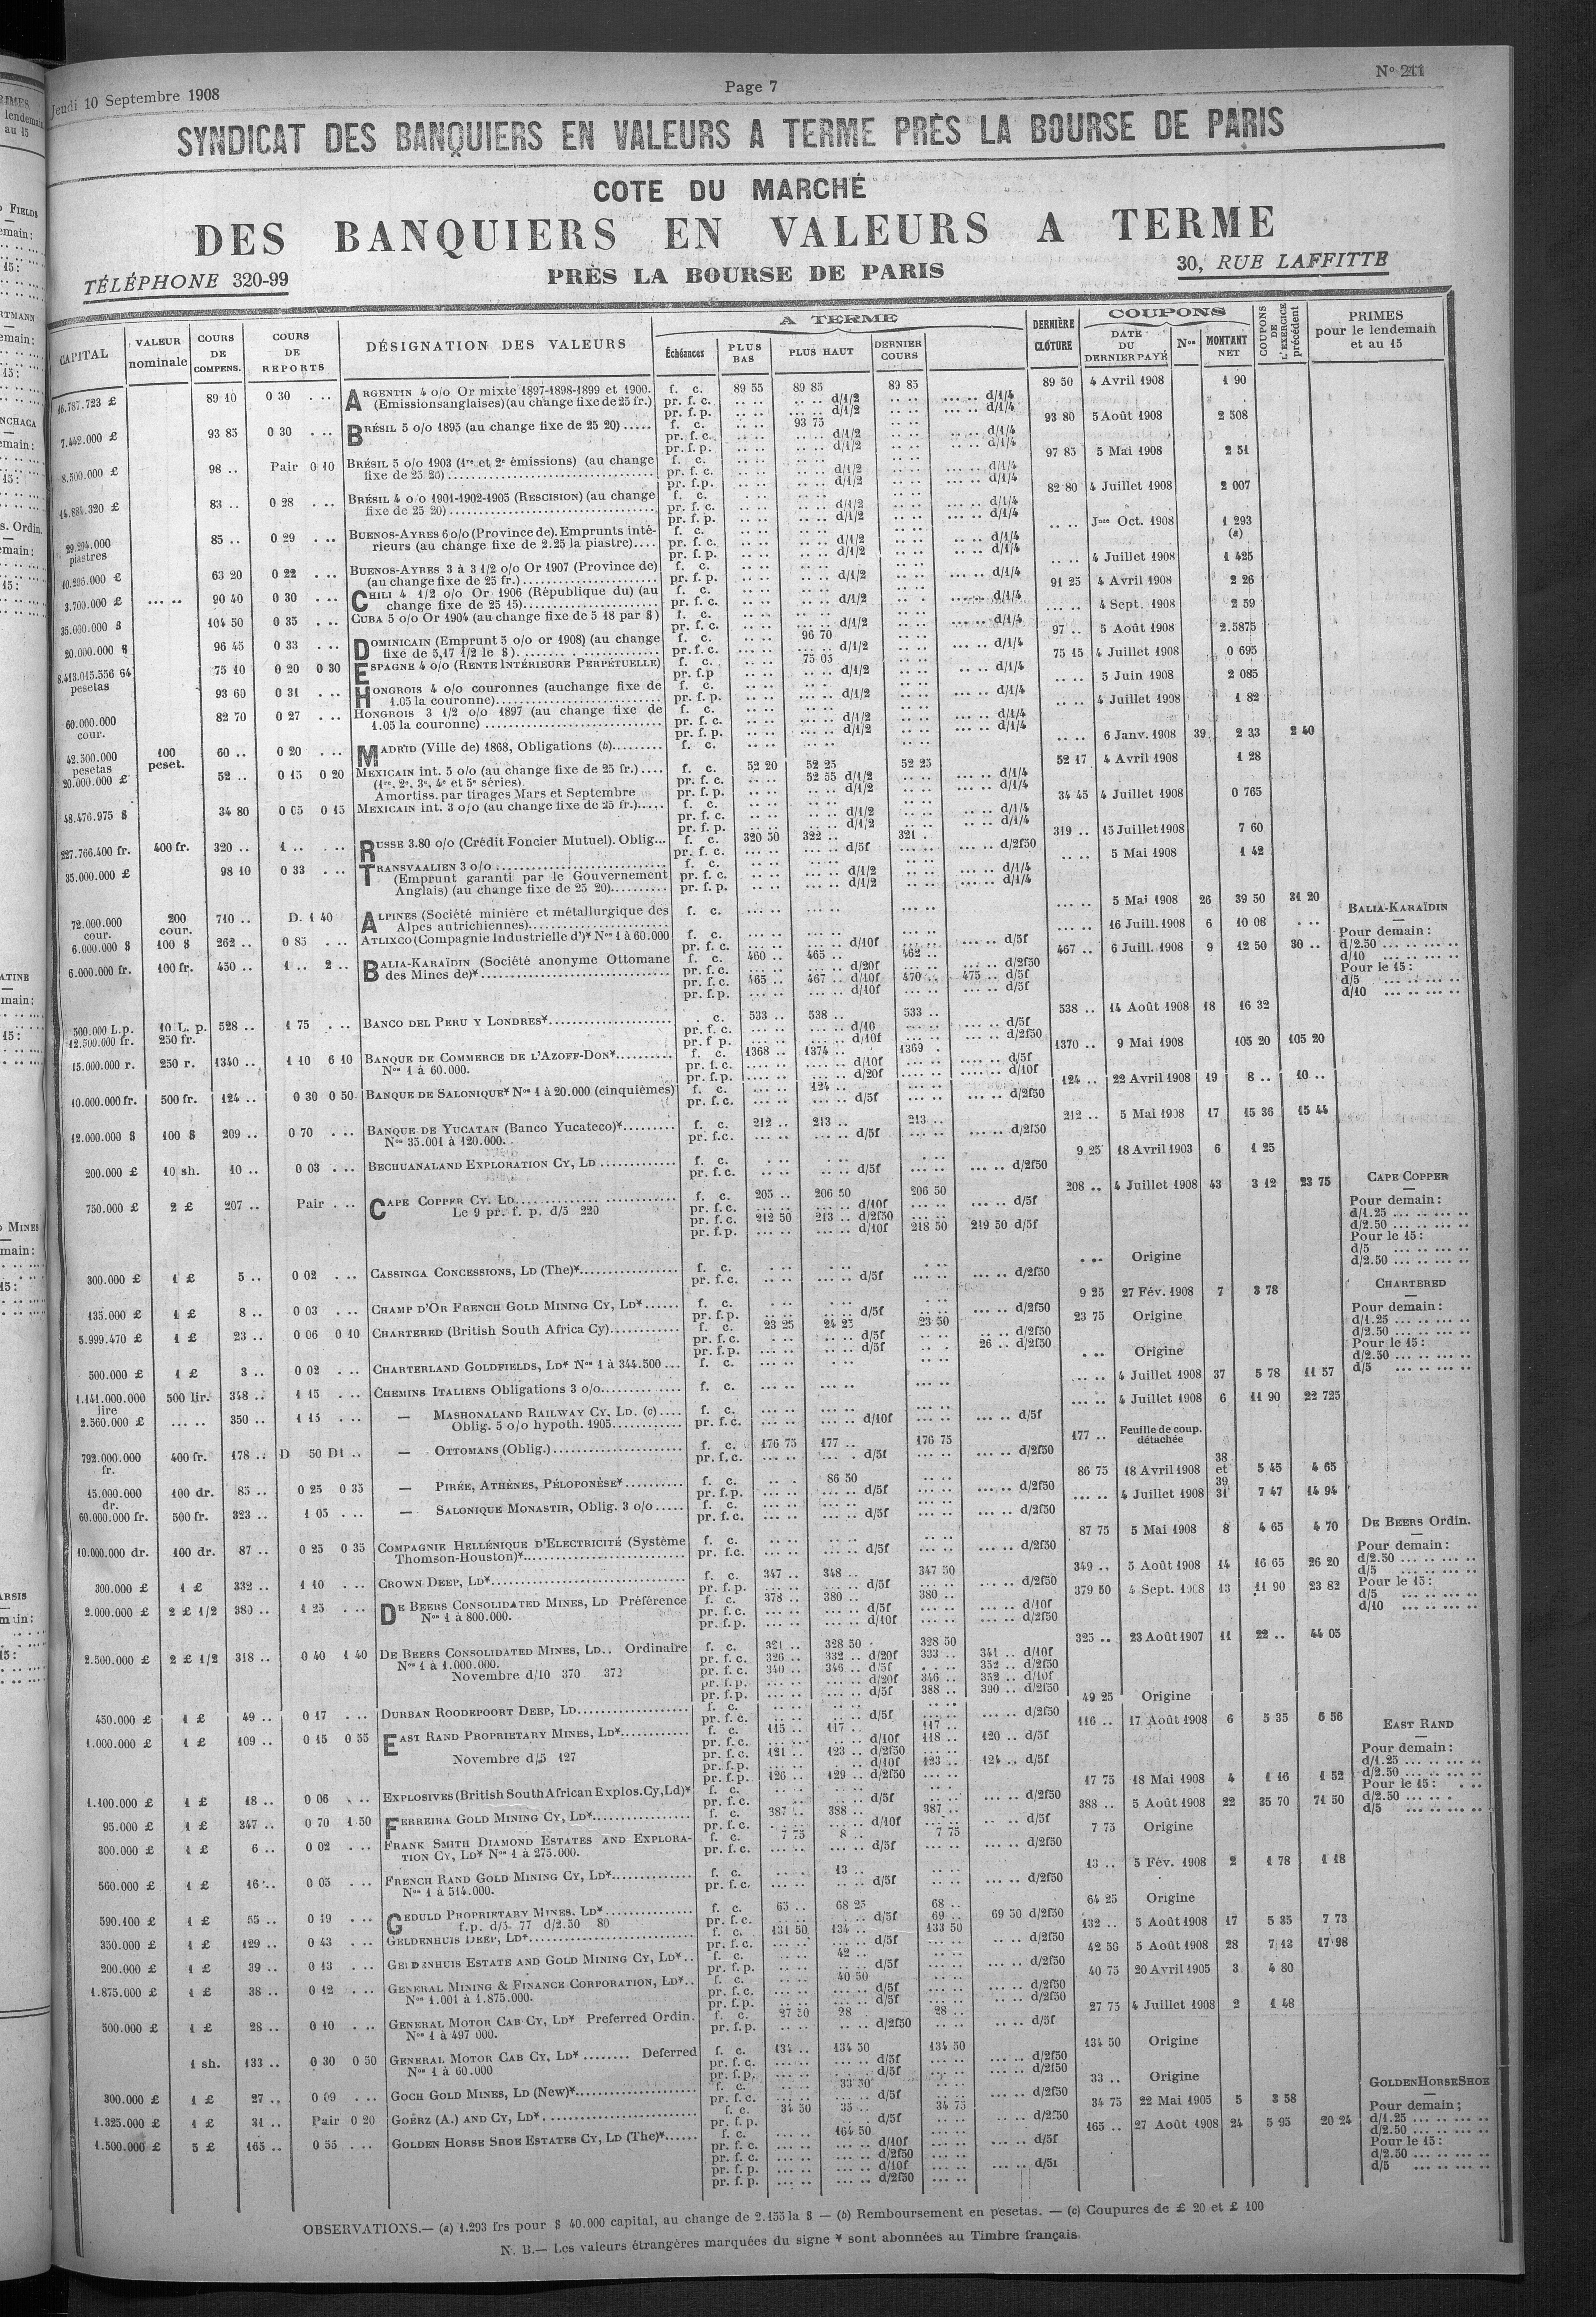 Jeudi 10 Septembre 1908
Page 7
N° 211
SYNDICAT DES BANQUIERS EN VALEURS A TERME PRÈS LA BOURSE DE PARIS
COTE DU MARCHÉ
DES BANQUIERS EN VALEURS A TERME
TÉLÉPHONE 320-99
PRÈS LA BOURSE DE PARIS
30, RUE LAFFITTE
CAPITAL
VALEUR nominale
COURS DE COMPENS.
COURS DE REPORTS
DÉSIGNATION DES VALEURS
A TERME
Échéances
PLUS BAS
PLUS HAUT
DERNIER COURS
DERNIÈRE CLÔTURE
COUPONS
DATE DU DERNIER PAYÉ
Nos
MONTANT NET
COUPONS DE L'EXERCICE précédent
PRIMES pour le lendemain et au 15
16.787.723 £ 89 10 0 30 ARGENTIN 4 o/o Or mixte 1897-1898-1899 et 1900. f. c. 89 55 89 85 89 85 89 50 4 Avril 1908 1 90
(Emissions anglaises) (au change fixe de 25 fr.) pr. f. c. d/1/2 d/1/4
pr. f. p. d/1/2 d/1/4
7.442.000 £ 93 85 0 30 BRÉSIL 5 o/o 1895 (au change fixe de 25 20) f. c. 93 75 93 80 5 Août 1908 2 508
8.500.000 £ 98 .. Pair 0 10 BRÉSIL 5 o/o 1903 (1re et 2e émissions) (au change fixe de 25 20) 97 85 5 Mai 1908 2 51
14.884.320 £ 83 .. 0 28 BRÉSIL 4 o/o 1901-1902-1905 (Rescision) (au change fixe de 25 20) 82 80 4 Juillet 1908 2 007
29.294.000 piastres 85 .. 0 29 BUENOS-AYRES 6 o/o (Province de). Emprunts intérieurs (au change fixe de 2.25 la piastre) Jnce Oct. 1908 1 293 (a)
10.295.000 £ 63 20 0 22 BUENOS-AYRES 3 à 3 1/2 o/o Or 1907 (Province de) (au change fixe de 25 fr.) 4 Juillet 1908 1 425
3.700.000 £ 90 40 0 30 CHILI 4 1/2 o/o Or 1906 (République du) (au change fixe de 25 15) 91 25 4 Avril 1908 2 26
35.000.000 $ 104 50 0 35 CUBA 5 o/o Or 1904 (au change fixe de 5 18 par $) 4 Sept. 1908 2 59
20.000.000 $ 96 45 0 33 DOMINICAIN (Emprunt 5 o/o or 1908) (au change fixe de 5,17 1/2 le $) 96 70 97 .. 5 Août 1908 2.5875
8.413.015.556 64 pesetas 75 10 0 20 0 30 ESPAGNE 4 o/o (RENTE INTÉRIEURE PERPÉTUELLE) 75 05 75 15 4 Juillet 1908 0 695
93 60 0 31 HONGROIS 4 o/o couronnes (au change fixe de 1.05 la couronne) 5 Juin 1908 2 085
60.000.000 cour. 82 70 0 27 HONGROIS 3 1/2 o/o 1897 (au change fixe de 1.05 la couronne) 4 Juillet 1908 1 82
42.500.000 pesetas 100 peset. 60 .. 0 20 MADRID (Ville de) 1868, Obligations (b) f. c. 6 Janv. 1908 39 2 33 2 40
20.000.000 £ 52 .. 0 15 0 20 MEXICAIN int. 5 o/o (au change fixe de 25 fr.) f. c. 52 20 52 25 52 25 52 17 4 Avril 1908 1 28
(1re, 2e, 3e, 4e et 5e séries). pr. f. c. 52 55 d/1/2 d/1/4
Amortiss. par tirages Mars et Septembre pr. f. p. d/1/2 d/1/4
48.476.975 $ 34 80 0 05 0 15 MEXICAIN int. 3 o/o (au change fixe de 25 fr.) 34 45 4 Juillet 1908 0 765
227.766.400 fr. 400 fr. 320 .. 1 .. RUSSE 3.80 o/o (Crédit Foncier Mutuel). Oblig... f. c. 320 50 322 .. 321 . 319 .. 15 Juillet 1908 7 60
35.000.000 £ 98 10 0 33 TRANSVAALIEN 3 o/o 5 Mai 1908 1 42
(Emprunt garanti par le Gouvernement Anglais) (au change fixe de 25 20)
72.000.000 cour. 200 cour. 710 .. D. 1 40 ALPINES (Société minière et métallurgique des Alpes autrichiennes) f. c. 5 Mai 1908 26 39 50 31 20
6.000.000 $ 100 $ 262 .. 0 85 ATLIXCO (Compagnie Industrielle d')* Nos 1 à 60.000 d/10f d/5f 16 Juill. 1908 6 10 08
6.000.000 fr. 100 fr. 450 .. 1 .. 2 .. BALIA-KARAÏDIN (Société anonyme Ottomane des Mines de)* f. c. 460 .. 465 .. 462 .. 467 .. 6 Juill. 1908 9 12 50 30 ..
pr. f. c. d/20f d/2f50
pr. f. c. 465 .. 467 .. d/10f 470 .. 475 .. d/5f
pr. f. p. d/10f d/5f
500.000 L.p. 10 L. p. 528 .. 1 75 BANCO DEL PERU Y LONDRES* 533 .. 538 .. 533 .. 538 .. 14 Août 1908 18 16 32
12.500.000 fr. 250 fr.
15.000.000 r. 250 r. 1340 .. 1 10 6 10 BANQUE DE COMMERCE DE L'AZOFF-DON* 1368 .. 1374 .. 1369 . 1370 .. 9 Mai 1908 105 20 105 20
Nos 1 à 60.000.
10.000.000 fr. 500 fr. 124 .. 0 30 0 50 BANQUE DE SALONIQUE* Nos 1 à 20.000 (cinquièmes) 124 .. 124 .. 22 Avril 1908 19 8 .. 10 ..
12.000.000 $ 100 $ 209 .. 0 70 BANQUE DE YUCATAN (Banco Yucateco)* 212 .. 213 .. 213 .. 212 .. 5 Mai 1908 17 15 36 15 44
Nos 35.001 à 120.000.
200.000 £ 10 sh. 10 .. 0 03 BECHUANALAND EXPLORATION CY, LD 9 25 18 Avril 1903 6 1 25
750.000 £ 2 £ 207 .. Pair CAPE COPPER CY. LD 205 .. 206 50 206 50 208 .. 4 Juillet 1908 43 3 12 23 75
Le 9 pr. f. p. d/5 220
pr. f. c. 212 50 213 .. d/2f50
pr. f. p. d/10f 218 50 219 50 d/5f
300.000 £ 1 £ 5 .. 0 02 CASSINGA CONCESSIONS, LD (The)* Origine
435.000 £ 1 £ 8 .. 0 03 CHAMP D'OR FRENCH GOLD MINING CY, LD* 9 25 27 Fév. 1908 7 3 78
5.999.470 £ 1 £ 23 .. 0 06 0 10 CHARTERED (British South Africa Cy) 23 25 24 25 23 50 23 75 Origine
pr. f. p. d/5f 26 .. d/2f50
500.000 £ 1 £ 3 .. 0 02 CHARTERLAND GOLDFIELDS, LD* Nos 1 à 344.500 Origine
1.141.000.000 lire 500 lir. 348 .. 1 15 CHEMINS ITALIENS Obligations 3 o/o 4 Juillet 1908 37 5 78 11 57
2.560.000 £ 350 .. 1 15 — MASHONALAND RAILWAY CY, LD. (c) 4 Juillet 1908 6 11 90 22 725
Oblig. 5 o/o hypoth. 1905
792.000.000 fr. 400 fr. 178 .. D 50 D1 .. — OTTOMANS (Oblig.) 176 75 177 .. 176 75 177 .. Feuille de coup. détachée
15.000.000 dr. 100 dr. 85 .. 0 25 0 35 — PIRÉE, ATHÈNES, PÉLOPONÈSE* 86 50 86 75 18 Avril 1908 38 et 39 5 45 4 65
60.000.000 fr. 500 fr. 323 .. 1 05 — SALONIQUE MONASTIR, Oblig. 3 o/o 4 Juillet 1908 31 7 47 14 94
10.000.000 dr. 100 dr. 87 .. 0 25 0 35 COMPAGNIE HELLÉNIQUE D'ELECTRICITÉ (Système Thomson-Houston)* 87 75 5 Mai 1908 8 4 65 4 70
300.000 £ 1 £ 332 .. 1 10 CROWN DEEP, LD* 347 .. 348 .. 347 50 349 .. 5 Août 1908 14 16 65 26 20
2.000.000 £ 2 £ 1/2 380 .. 1 25 DE BEERS CONSOLIDATED MINES, LD Préférence 378 .. 380 .. 380 .. 379 50 4 Sept. 1908 13 11 90 23 82
Nos 1 à 800.000.
2.500.000 £ 2 £ 1/2 318 .. 0 40 1 40 DE BEERS CONSOLIDATED MINES, LD.. Ordinaire f. c. 321 .. 328 50 328 50 325 .. 23 Août 1907 11 22 .. 44 05
Nos 1 à 1.000.000. pr. f. c. 326 .. 332 .. d/20f 333 .. 341 .. d/10f
Novembre d/10 370 372 pr. f. c. 340 .. 346 .. d/5f 352 .. d/2f50
pr. f. p. d/20f 346 .. 352 .. d/10f
pr. f. p. d/5f 388 .. 390 .. d/2f50
450.000 £ 1 £ 49 .. 0 17 DURBAN ROODEPOORT DEEP, LD 49 25 Origine
1.000.000 £ 1 £ 109 .. 0 15 0 55 EAST RAND PROPRIETARY MINES, LD* f. c. 115 .. 117 .. 117 .. 116 .. 17 Août 1908 6 5 35 6 56
pr. f. c. d/10f 118 .. 120 .. d/5f
Novembre d/5 127 pr. f. c. 121 .. 123 .. d/2f50
pr. f. p. d/10f 123 .. 124 .. d/5f
pr. f. p. 126 .. 129 .. d/2f50
1.100.000 £ 1 £ 18 .. 0 06 EXPLOSIVES (British South African Explos. Cy, Ld)* 17 75 18 Mai 1908 4 1 16 1 52
95.000 £ 1 £ 347 .. 0 70 1 50 FERREIRA GOLD MINING CY, LD* 387 .. 388 .. 387 .. 388 .. 5 Août 1908 22 35 70 71 50
300.000 £ 1 £ 6 .. 0 02 FRANK SMITH DIAMOND ESTATES AND EXPLORATION CY, LD* Nos 1 à 275.000. 7 75 8 .. 7 75 7 75 Origine
560.000 £ 1 £ 16 .. 0 05 FRENCH RAND GOLD MINING CY, LD* 13 .. 13 .. 5 Fév. 1908 2 1 78 1 18
Nos 1 à 514.000.
590.100 £ 1 £ 55 .. 0 19 GEDULD PROPRIETARY MINES. LD* 65 .. 68 25 68 .. 64 25 Origine
f.p. d/5- 77 d/2.50 80 pr. f. c. d/5f 69 .. 69 50 d/2f50
350.000 £ 1 £ 129 .. 0 43 GELDENHUIS DEEP, LD* 131 50 134 .. 133 50 132 .. 5 Août 1908 17 5 35 7 73
200.000 £ 1 £ 39 .. 0 13 GELDENHUIS ESTATE AND GOLD MINING CY, LD* 42 .. 42 50 5 Août 1908 28 7 13 17 98
1.875.000 £ 1 £ 38 .. 0 12 GENERAL MINING & FINANCE CORPORATION, LD* 40 50 40 75 20 Avril 1905 3 4 80
Nos 1.001 à 1.875.000.
500.000 £ 1 £ 28 .. 0 10 GENERAL MOTOR CAB CY, LD* Preferred Ordin. 27 50 28 .. 28 .. 27 75 4 Juillet 1908 2 1 48
Nos 1 à 497 000.
1 sh. 133 .. 0 30 0 50 GENERAL MOTOR CAB CY, LD* Deferred 134 .. 134 50 134 50 134 50 Origine
Nos 1 à 60.000
300.000 £ 1 £ 27 .. 0 09 GOCH GOLD MINES, LD (New)* 33 50 33 .. Origine
1.325.000 £ 1 £ 31 .. Pair 0 20 GOERZ (A.) AND CY, LD* 34 50 35 .. 34 75 34 75 22 Mai 1905 5 3 58
1.500.000 £ 5 £ 165 .. 0 55 GOLDEN HORSE SHOE ESTATES CY, LD (The)* 164 50 165 .. 27 Août 1908 24 5 95 20 24
BALIA-KARAÏDIN
Pour demain:
d/2.50
d/10
Pour le 15:
d/5
d/10
CAPE COPPER
Pour demain:
d/1.25
d/2.50
Pour le 15:
d/5
d/2.50
CHARTERED
Pour demain:
d/1.25
d/2.50
Pour le 15:
d/2.50
d/5
DE BEERS Ordin.
Pour demain:
d/2.50
d/5
Pour le 15:
d/5
d/10
EAST RAND
Pour demain:
d/1.25
d/2.50
Pour le 15:
d/2.50
d/5
GOLDEN HORSE SHOE
Pour demain;
d/1.25
d/2.50
Pour le 15:
d/2.50
d/5
OBSERVATIONS.— (a) 1.293 frs pour $ 40.000 capital, au change de 2.155 la $ — (b) Remboursement en pesetas. — (c) Coupures de £ 20 et £ 100
N. B.— Les valeurs étrangères marquées du signe * sont abonnées au Timbre français.